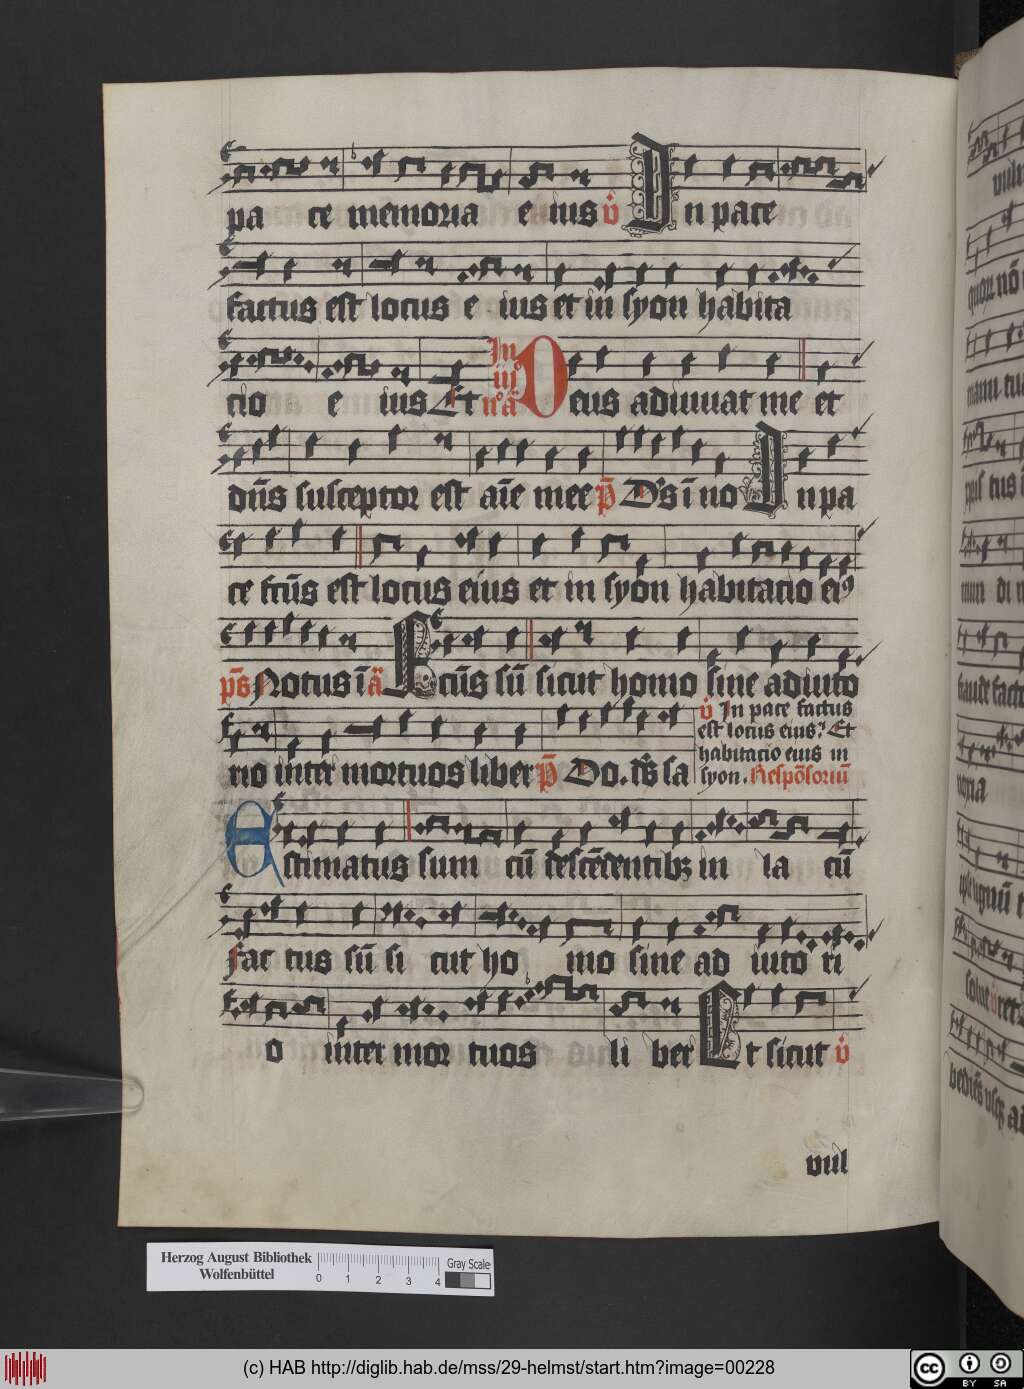 pa ce memoria e ius v̇ In pace
factus est locus e ius et in syon habita
cio e ius Et In iijo noa Deus adiuuat me et
dn̄s susceptor est aīe mee p̄ Ds ī no In pa
ce fctūs est locus eius et in syon habitacio eiꝰ
ps̄ Notus ī a Fctūs sū sicut homo sine adiuto
rio inter mortuos liber p̄ Do. ds̄ sa
v̇ In pace factus
est locus eius. Et
habitacio eius in
syon. Respōsoriū
Estimatus sum cū descēdentibꝫ in la cū
fac tus sū si cut ho mo sine ad iuto ri
o inter mor tuos li ber Et sicut v̇
vul
Herzog August Bibliothek
Wolfenbüttel
0 1 2 3 4
Gray Scale
(c) HAB http://diglib.hab.de/mss/29-helmst/start.htm?image=00228
cc BY SA